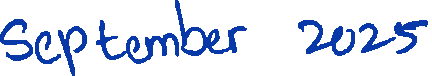 September 2025